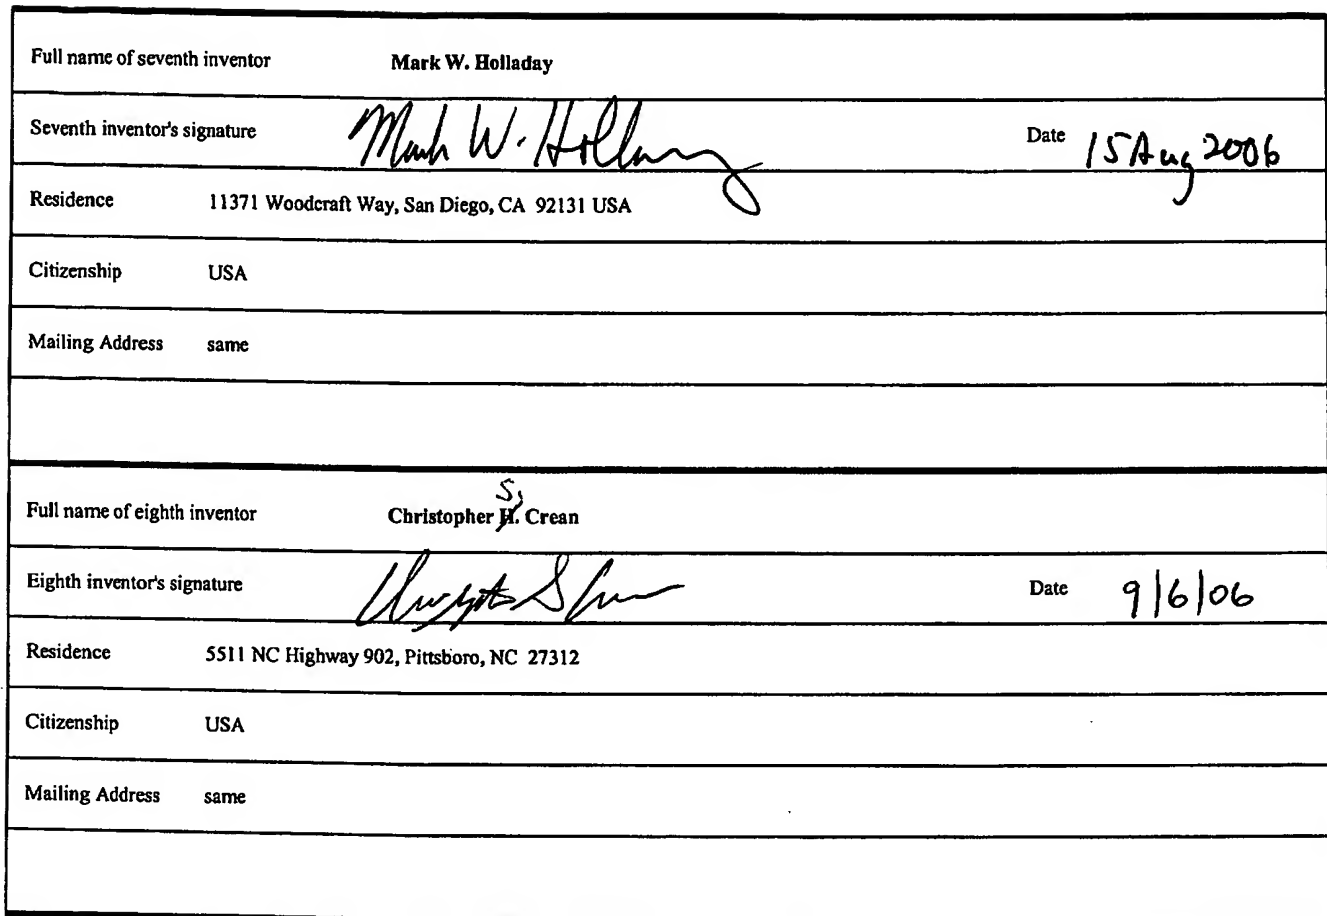 Full name of seventh inventor Mark W. Holladay
Seventh inventor's signature Mark W. Holladay Date 15 Aug 2006
Residence 11371 Woodcraft Way, San Diego, CA 92131 USA
Citizenship USA
Mailing Address same
S.
Full name of eighth inventor Christopher H. Crean
Eighth inventor's signature Christopher S Crean Date 9/6/06
Residence 5511 NC Highway 902, Pittsboro, NC 27312
Citizenship USA
Mailing Address same